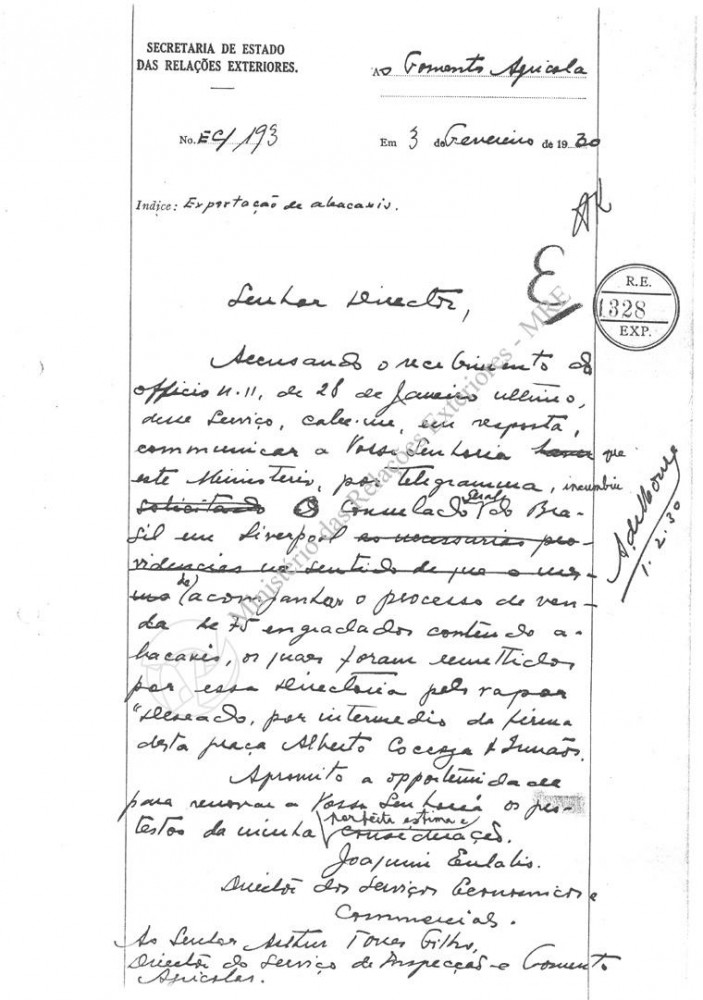 SECRETARIA DE ESTADO
DAS RELAÇÕES EXTERIORES.
AO Fomento Agricola
No. EC/193
Em 3 de Fevereiro de 1930
Indice: Exportação de abacaxis.
AK
E
R.E.
1328
EXP.
Senhor Director,
Accusando o recebimento do
officio n. 11, de 28 de Janeiro ultimo,
desse Serviço, cabe-me, em resposta,
communicar a Vossa Senhoria que
este Ministerio, por telegramma, incumbiu
solicitando o Consulado Geral do Bra-
sil em Liverpool as necessarias pro-
videncias no sentido de que o mes-
mo (de) acompanhar o processo de ven-
da de 75 engradados contendo a-
bacaxis, os quaes foram remettidos
por essa Directoria pelo vapor
"Deseado, por intermedio da firma
desta praça Alberto Cocozza & Irmãos.
Aproveito a opportunidade
para renovar a Vossa Senhoria os pro-
testos da minha perfeita estima e
consideração.
Joaquim Eulalio.
Director dos Serviços Economicos e
Commerciaes.
Ao Senhor Arthur Torres Filho,
Director do Serviço de Inspecção e Fomento
Agricolas.
1.2.30
Ministério das Relações Exteriores - MRE